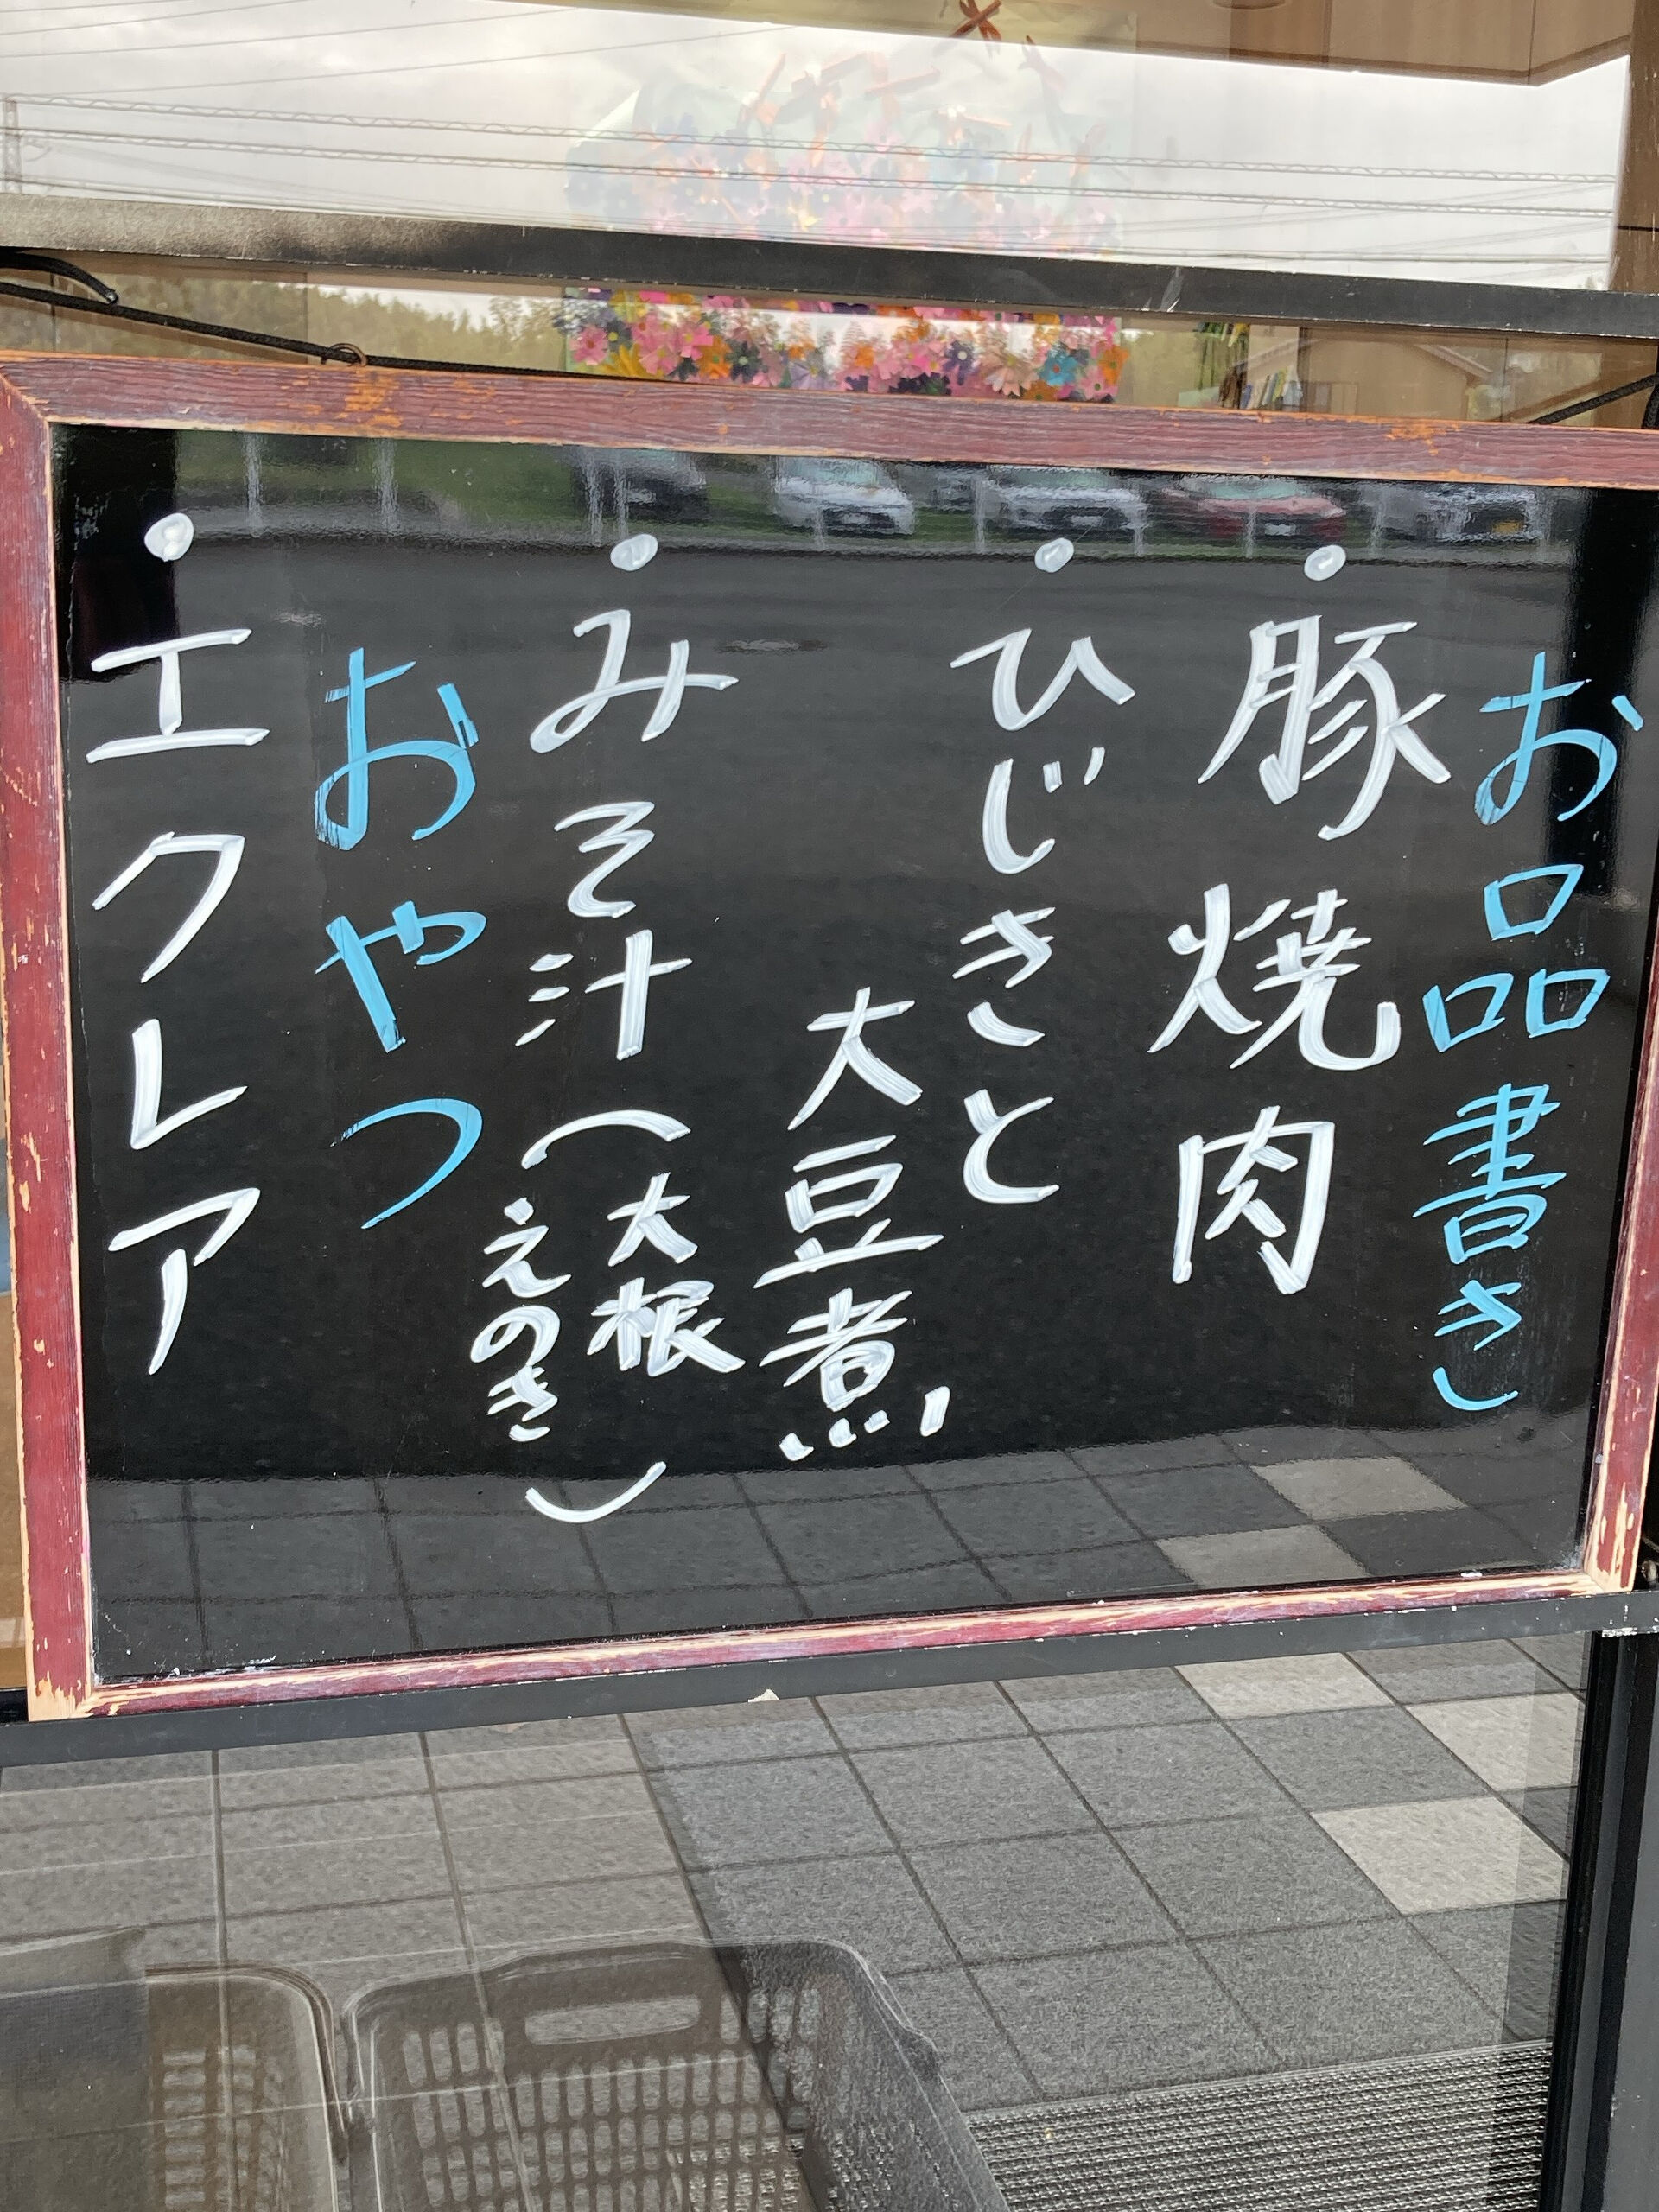 お品書き
・豚焼肉
・ひじきと
大豆煮
・みそ汁(大根
えのき)
おやつ
・エクレア